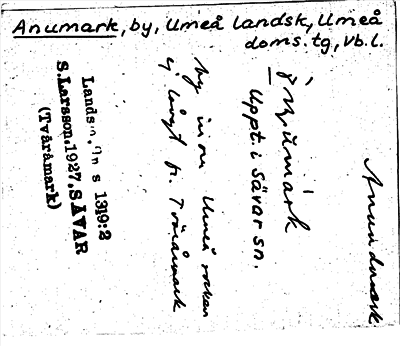 Anumark, by, Umeå landsk, Umeå
doms. tg, Vb. l.
Anundmark
Uppt. i Sävar sn.
by inom Umeå socken
ej långt fr. Tväråmark
Lands
s 1349:2
S.Larsson.1927.SÄVAR
(Tväråmark)